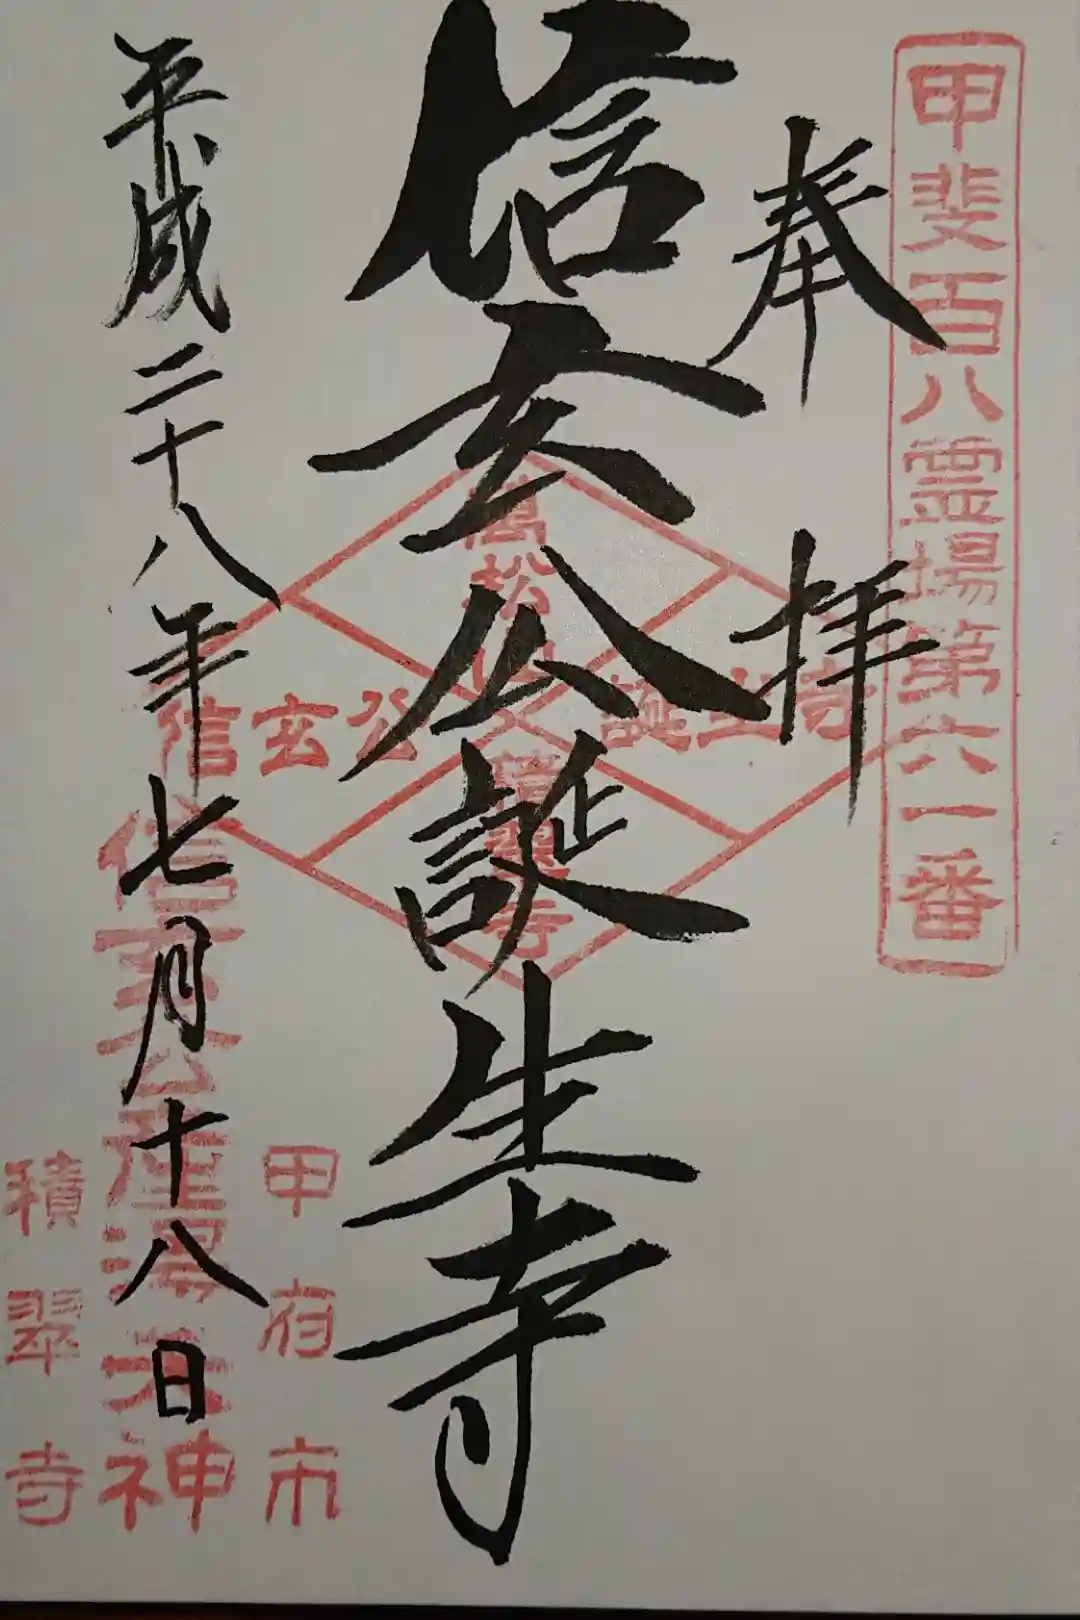 甲斐百八霊場第六一番
奉拝
信玄公誕生寺
萬松山
積翠寺
信玄公
誕生寺
平成二十八年七月十八日
甲府市
信玄公産湯天神
積翠寺